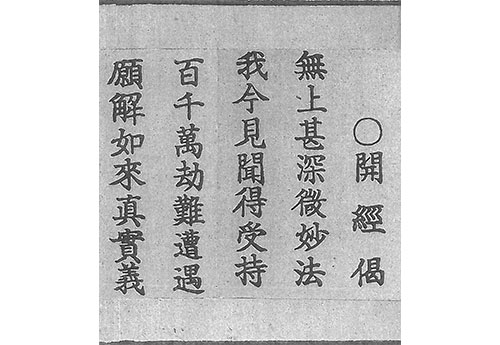 ○開經偈
無上甚深微妙法
我今見聞得受持
百千萬劫難遭遇
願解如來真實義